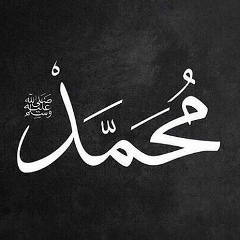 مُحَمَّدْ
صلى الله
عليه
وسلم